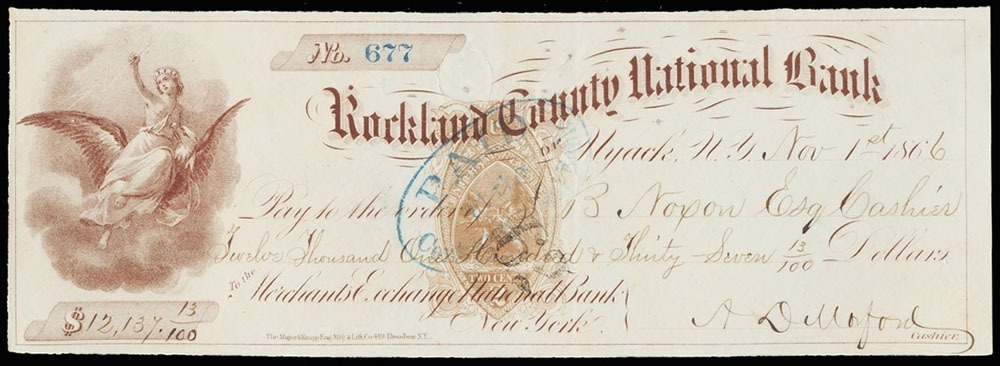 No. 677
Rockland County National Bank
OF Nyack, N.Y. Nov 1st 1866
Pay to the order B Noxon Esq Cashier
Twelve Thousand One Hundred & Thirty-Seven 13/100 Dollars
To the Merchants Exchange National Bank
New York.
$12,137.13/100
A D Morford
Cashier.
The Major & Knapp Eng. Mfg. & Lith. Co. 449 Broadway N.Y.
PAID
TWO CEN